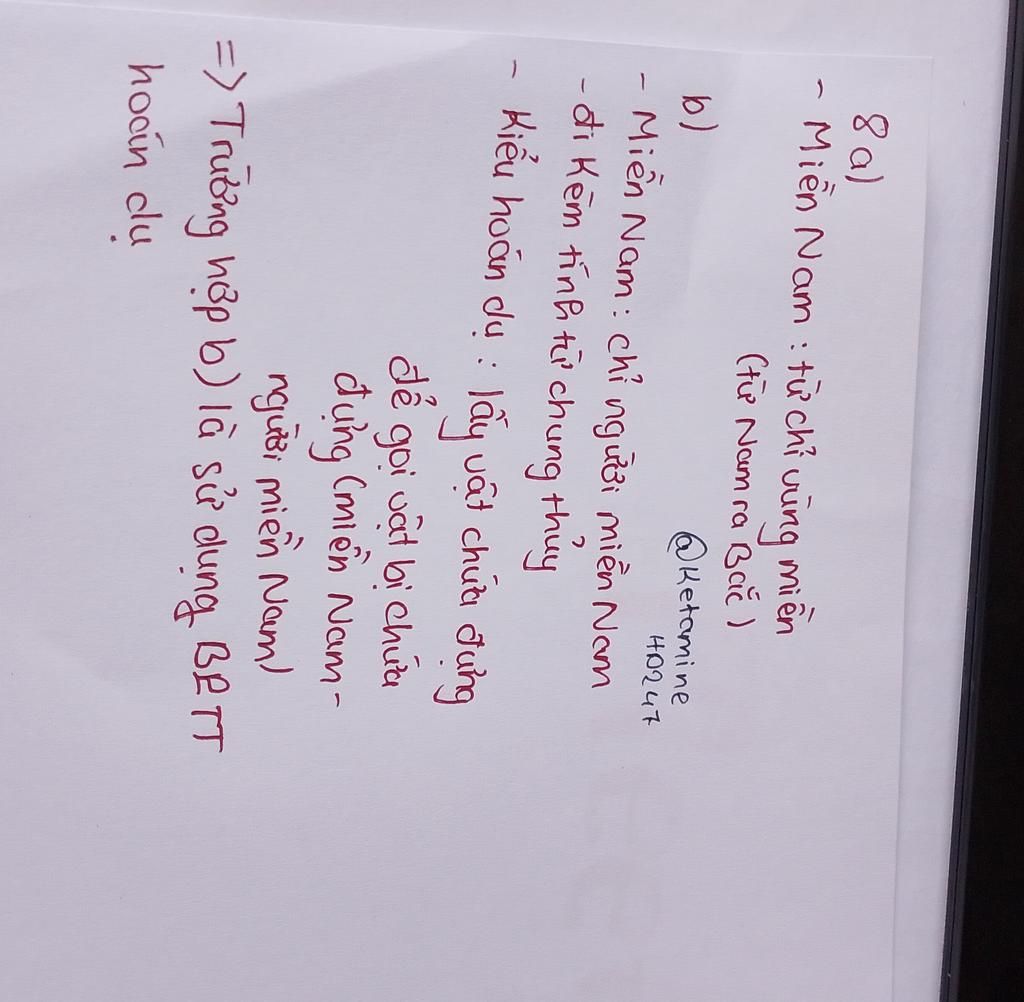 8a)
- Miền Nam : từ chỉ vùng miền
(từ Nam ra Bắc)
b)
@Ketamine
HD247
- Miền Nam : chỉ người miền Nam
- đi kèm tính từ chung thủy
- Kiểu hoán dụ : lấy vật chứa đựng
để gọi vật bị chứa
đựng (miền Nam -
người miền Nam)
=> Trường hợp b) là sử dụng BPTT
hoán dụ